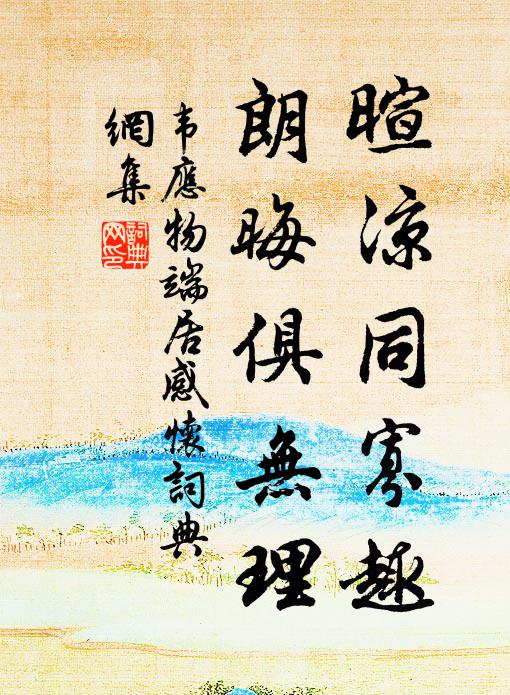 暄涼同寡趣
朗晦俱無理
韦應物端居感懷詞典
網集
詞典
网印